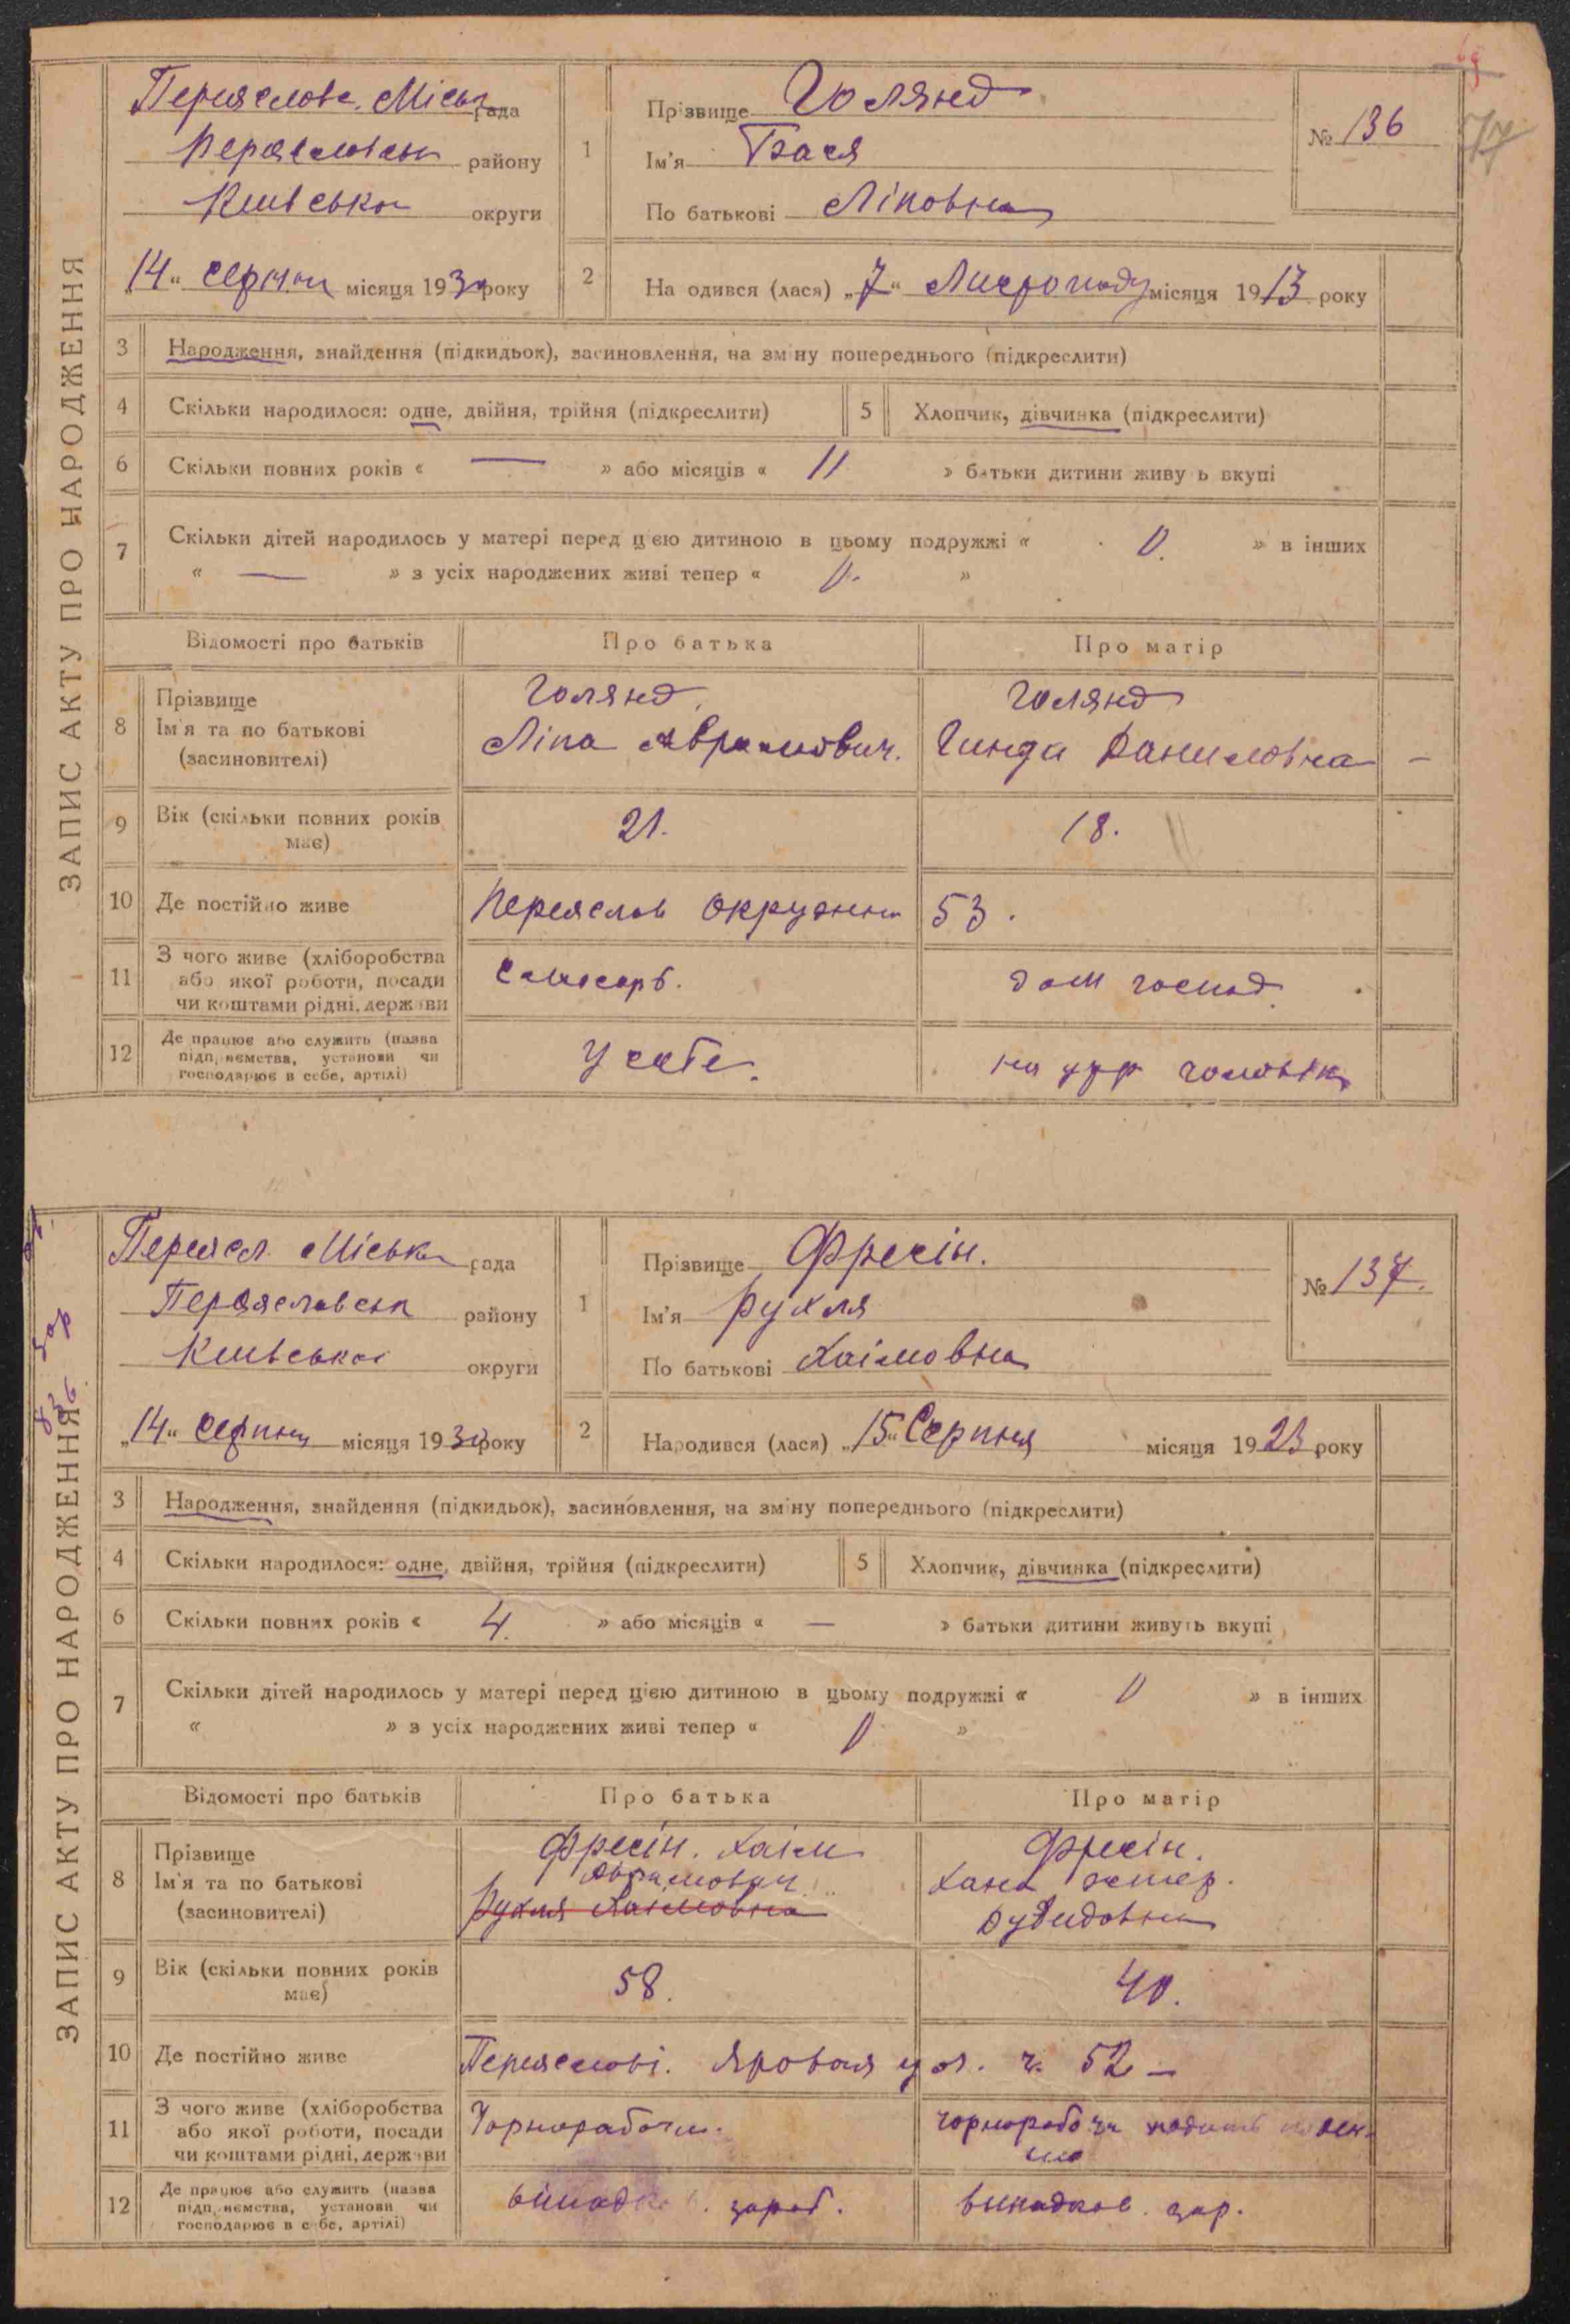 69
77
ЗАПИС АКТУ ПРО НАРОДЖЕННЯ
Переяславс. Міська рада
Переяславськ району
Київська округи
„14“ серпня місяця 1930 року
1
Прізвище Голянд
Ім'я Бася
По батькові Ліповна
№ 136
2
На одився (лася) „7“ Листопаду місяця 1913 року
3 Народження, знайдення (підкидьок), засиновлення, на зміну попереднього (підкреслити)
4 Скільки народилося: одне, двійня, трійня (підкреслити) 5 Хлопчик, дівчинка (підкреслити)
6 Скільки повних років « — » або місяців « 11 » батьки дитини живу ь вкупі
7 Скільки дітей народилось у матері перед цією дитиною в цьому подружжі « 0. » в інших
« — » з усіх народжених живі тепер « 0. »
Відомості про батьків Про батька Про матір
8 Прізвище
Ім'я та по батькові
(засиновителі)
Голянд.
Ліпа Аврамович.
Голянд
Гинда Даниловна –
9 Вік (скільки повних років
має)
21.
18.
10 Де постійно живе Переяслав Окружна 53.
11 З чого живе (хліборобства
або якої роботи, посади
чи коштами рідні, держави
дом господ.
12 Де працює або служить (назва
підприємства, установи чи
господарює в себе, артілі)
У себе.
на утр чоловіка
ЗАПИС АКТУ ПРО НАРОДЖЕННЯ
Переясл. Міська рада
Переяславськ району
Київська округи
„14“ серпня місяця 1930 року
1
Прізвище Фресін.
Ім'я Рухля
По батькові Хаімовна
№ 137.
2
Народився (лася) „15“ Серпня місяця 1923 року
3 Народження, знайдення (підкидьок), засиновлення, на зміну попереднього (підкреслити)
4 Скільки народилося: одне, двійня, трійня (підкреслити) 5 Хлопчик, дівчинка (підкреслити)
6 Скільки повних років « 4. » або місяців « — » батьки дитини живуть вкупі
7 Скільки дітей народилось у матері перед цією дитиною в цьому подружжі « 0 » в інших
« » з усіх народжених живі тепер « 0 »
Відомості про батьків Про батька Про матір
8 Прізвище
Ім'я та по батькові
(засиновителі)
Фресін. Хаім
Аврамович
Рухля Хаімовна
Фресін.
Хана Эстер.
Дувидовна
9 Вік (скільки повних років
має)
58.
40.
10 Де постійно живе Переяслові. Яровая ул. ч. 52 —
11 З чого живе (хліборобства
або якої роботи, посади
чи коштами рідні, держави
Чорнорабочи.
чорнорабоча
12 Де працює або служить (назва
підприємства, установи чи
господарює в себе, артілі)
випадков. зароб.
випадков. зар.